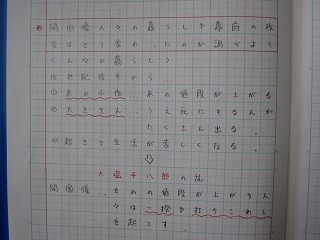 開国後人々の暮らしや幕府の政
治はどう変わったのか調べよう
〈人々の暮らし〉
19世紀後半から
①米の不作…米の値段が上がる
②ききん…うえ死にする人が
たくさん出る。
が起きて生活が苦しくなる。
大塩平八郎の乱
開国後…ものの値段が上がり人
々は一揆や打ちこわし
を起こす。